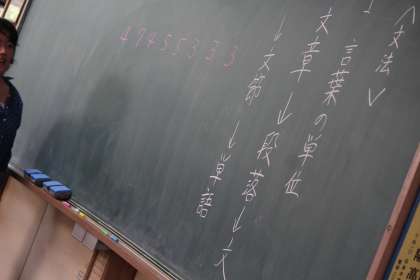 〈文法〉
言葉の単位
文章→段落→文
→文節→単語
47455333